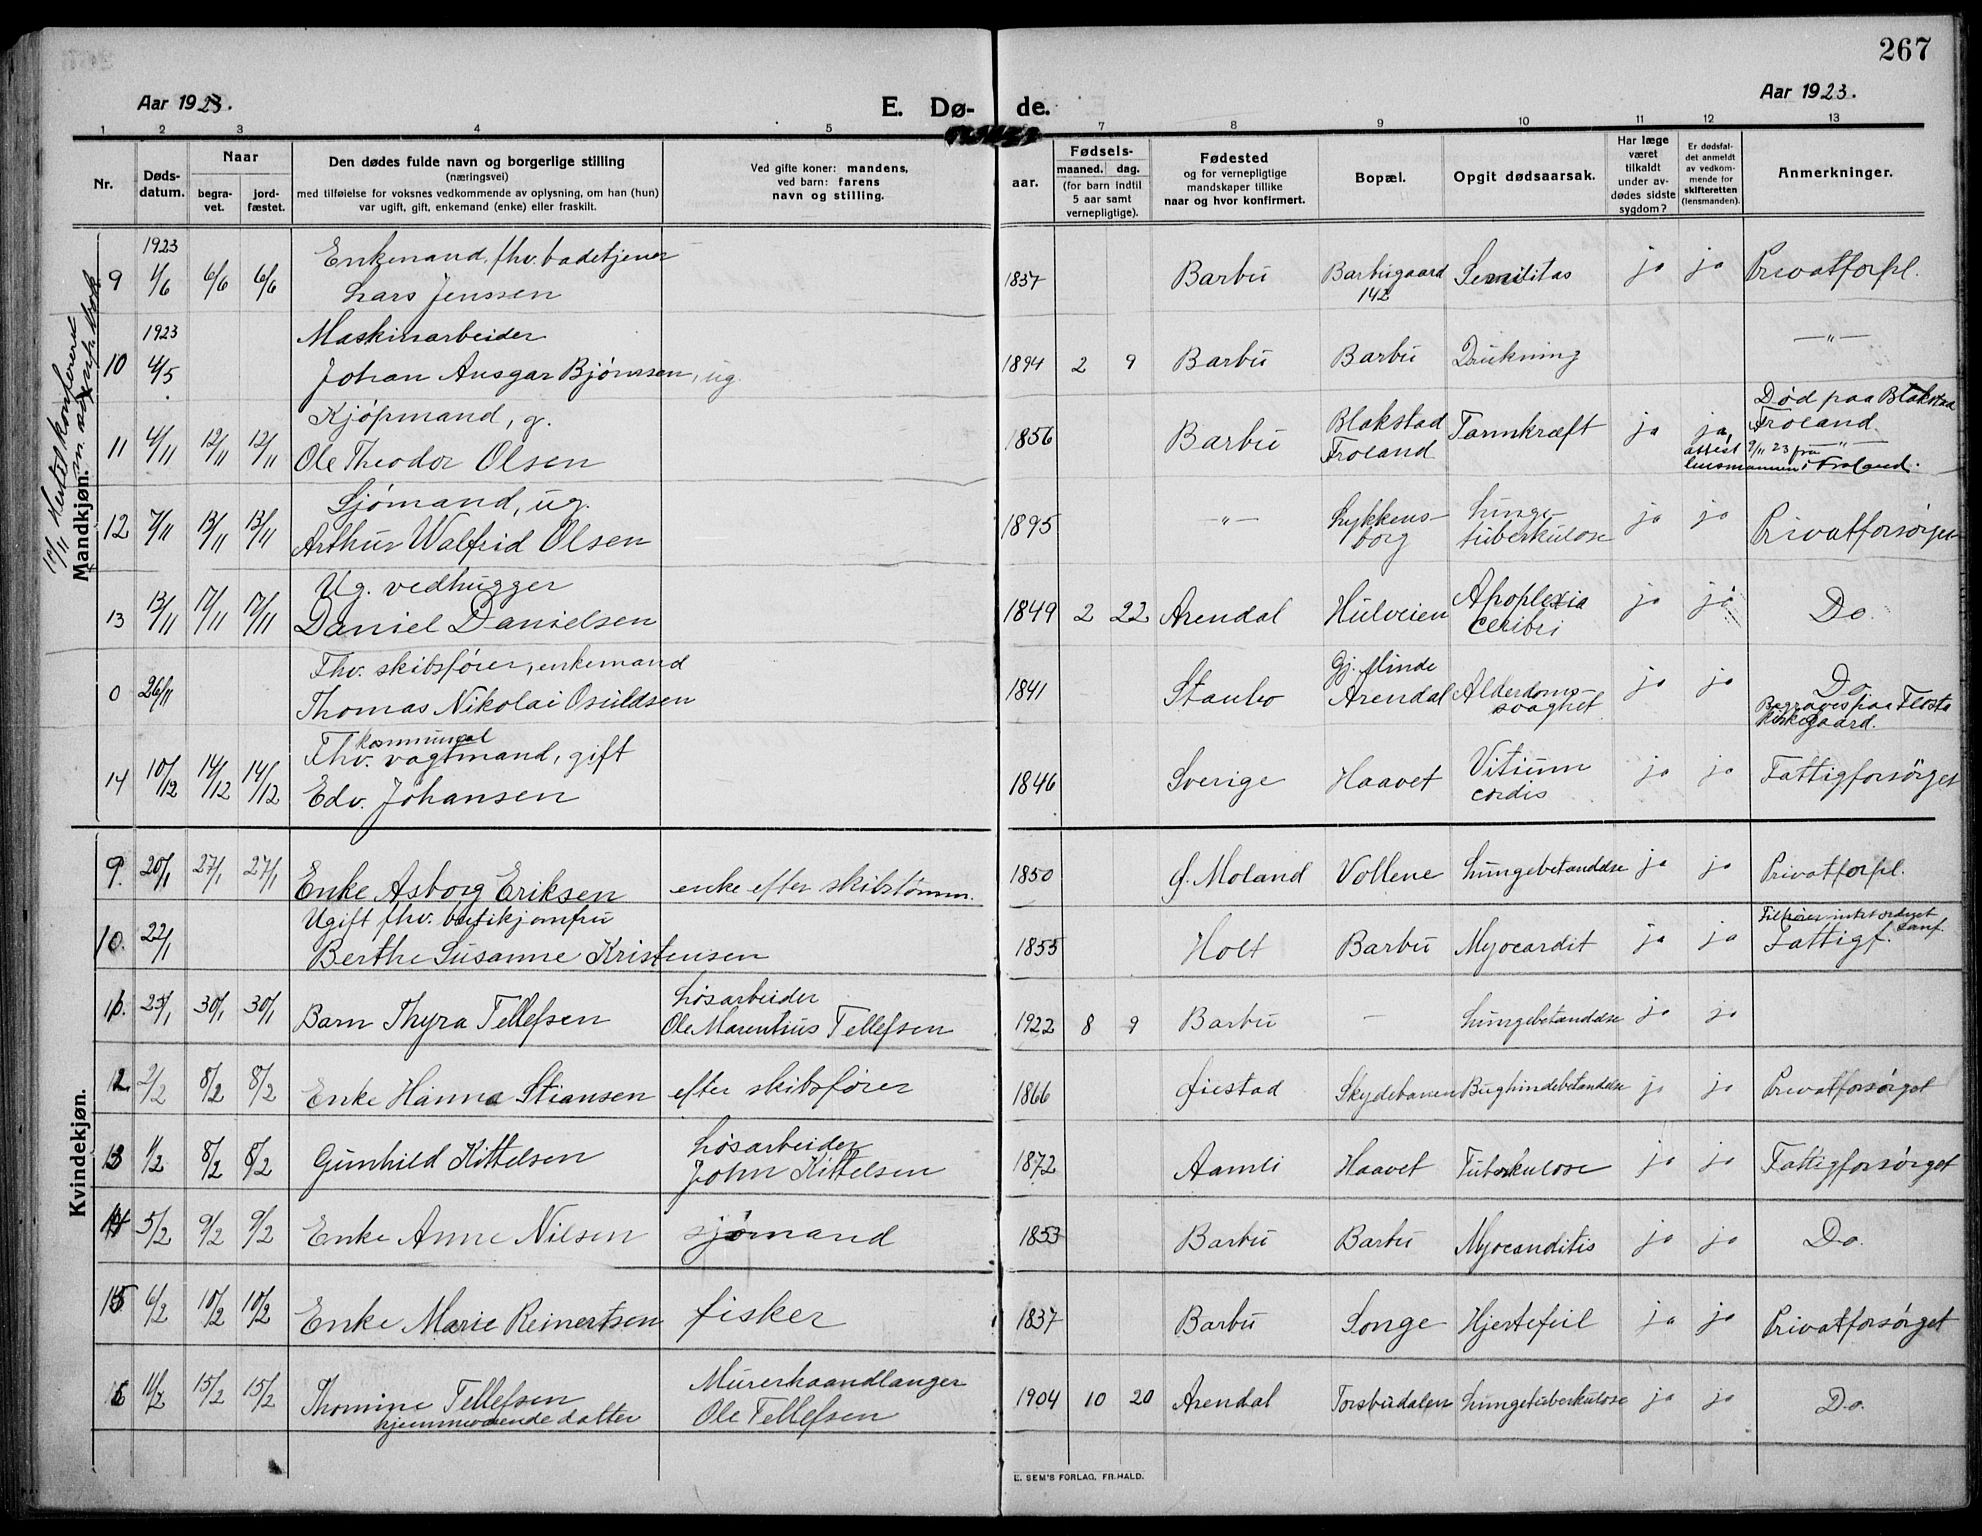 267
Aar 1923.
E. Dø- de.
Aar 1923.
1 2 3 4 5 7 8 9 10 11 12 13
Nr.
Døds-
datum.
Naar
begra-
vet.
jord-
fæstet.
Den dødes fulde navn og borgerlige stilling
(næringsvei)
med tilføielse for voksnes vedkommende av oplysning, om han (hun)
var ugift, gift, enkemand (enke) eller fraskilt.
Ved gifte koner: mandens,
ved barn: farens
navn og stilling.
aar.
Fødsels-
maaned. dag.
(for barn indtil
5 aar samt
vernepligtige).
Fødested
og for vernepligtige
mandskaper tillike
naar og hvor konfirmert.
Bopæl.
Opgit dødsaarsak.
Har læge
været
tilkaldt
under av-
dødes sidste
sygdom?
Er dødsfal-
det anmeldt
av vedkom-
mende for
skifteretten
(lensmanden).
Anmerkninger.
Mandkjøn.
1923 Enkemand, fhv. badetjener
9 1/6 6/6 6/6 Lars Jenssen 1837 Barbu Barbugaard 142 Senilitas ja ja Privatforpl.
1923 Maskinarbeider
10 4/5 Johan Ansgar Bjørnsen, ug. 1894 2 9 Barbu Barbu Drukning —"—
Kjøpmand, g.
11 4/11 12/11 12/11 Ole Theodor Olsen 1856 Barbu Blakstad Froland Tarmkræft ja ja, attest Død paa Blakstad Froland
9/11 23 fra lensmannen i Froland.
Sjømand, ug.
12 7/11 13/11 13/11 Arthur Walfrid Olsen 1895 —"— Lykkens-borg Lunge-tuberkulose ja ja Privatforsørget
Ug. vedhugger
13 13/11 17/11 17/11 Daniel Danielsen 1849 2 22 Arendal Hulveien Apoplexia ceribri ja ja Do.
Fhv. skibsfører, enkemand
0 26/11 Thomas Nikolai Osuldsen 1841 Staubo Gj. Minde Arendal Alderdoms-svaghet ja ja Do
Begraves paa Flosta Kirkegaard.
kommunal
Fhv. vagtmand, gift
14 10/12 14/12 14/12 Edv. Johansen 1846 Sverige Haavet Vitium cordis ja ja Fattigforsørget
Kvindekjøn.
9. 20/1 27/1 27/1 Enke Asborg Eriksen enke efter skibstømm. 1850 Ø. Moland Vollene Lungebetændelse ja ja Privatforpl.
Ugift fhv. butikjomfru
10. 22/1 Berthe Susanne Kristensen 1855 Holt Barbu Myocardit ja ja Fattigf.
Løsarbeider
11. 25/1 30/1 30/1 Barn Thyra Tellefsen Ole Marentius Tellefsen 1922 8 9 Barbu — Lungebetændelse ja ja
12 2/2 8/2 8/2 Enke Hanna Stiansen efter skibsfører 1866 Øiestad Skydebanen Bughindebetændelse ja ja Privatforsørget
Løsarbeider
13 1/2 8/2 8/2 Gunhild Kittelsen John Kittelsen 1872 Aamli Haavet Tuberkulose ja ja Fattigforsørget
14 5/2 9/2 9/2 Enke Anne Nilsen sjømand 1853 Barbu Barbu Myocarditis ja ja Do.
15 6/2 10/2 10/2 Enke Marie Reinertsen fisker 1837 Barbu Songe Hjertefeil ja ja Privatforsørget
Murerhaandlanger
16 11/2 15/2 15/2 Thomine Tellefsen Ole Tellefsen 1904 10 20 Arendal Torsbudalen Lungetuberkulose ja ja Do.
hjemmeværende datter
E. SEM'S FORLAG, FR.HALD.